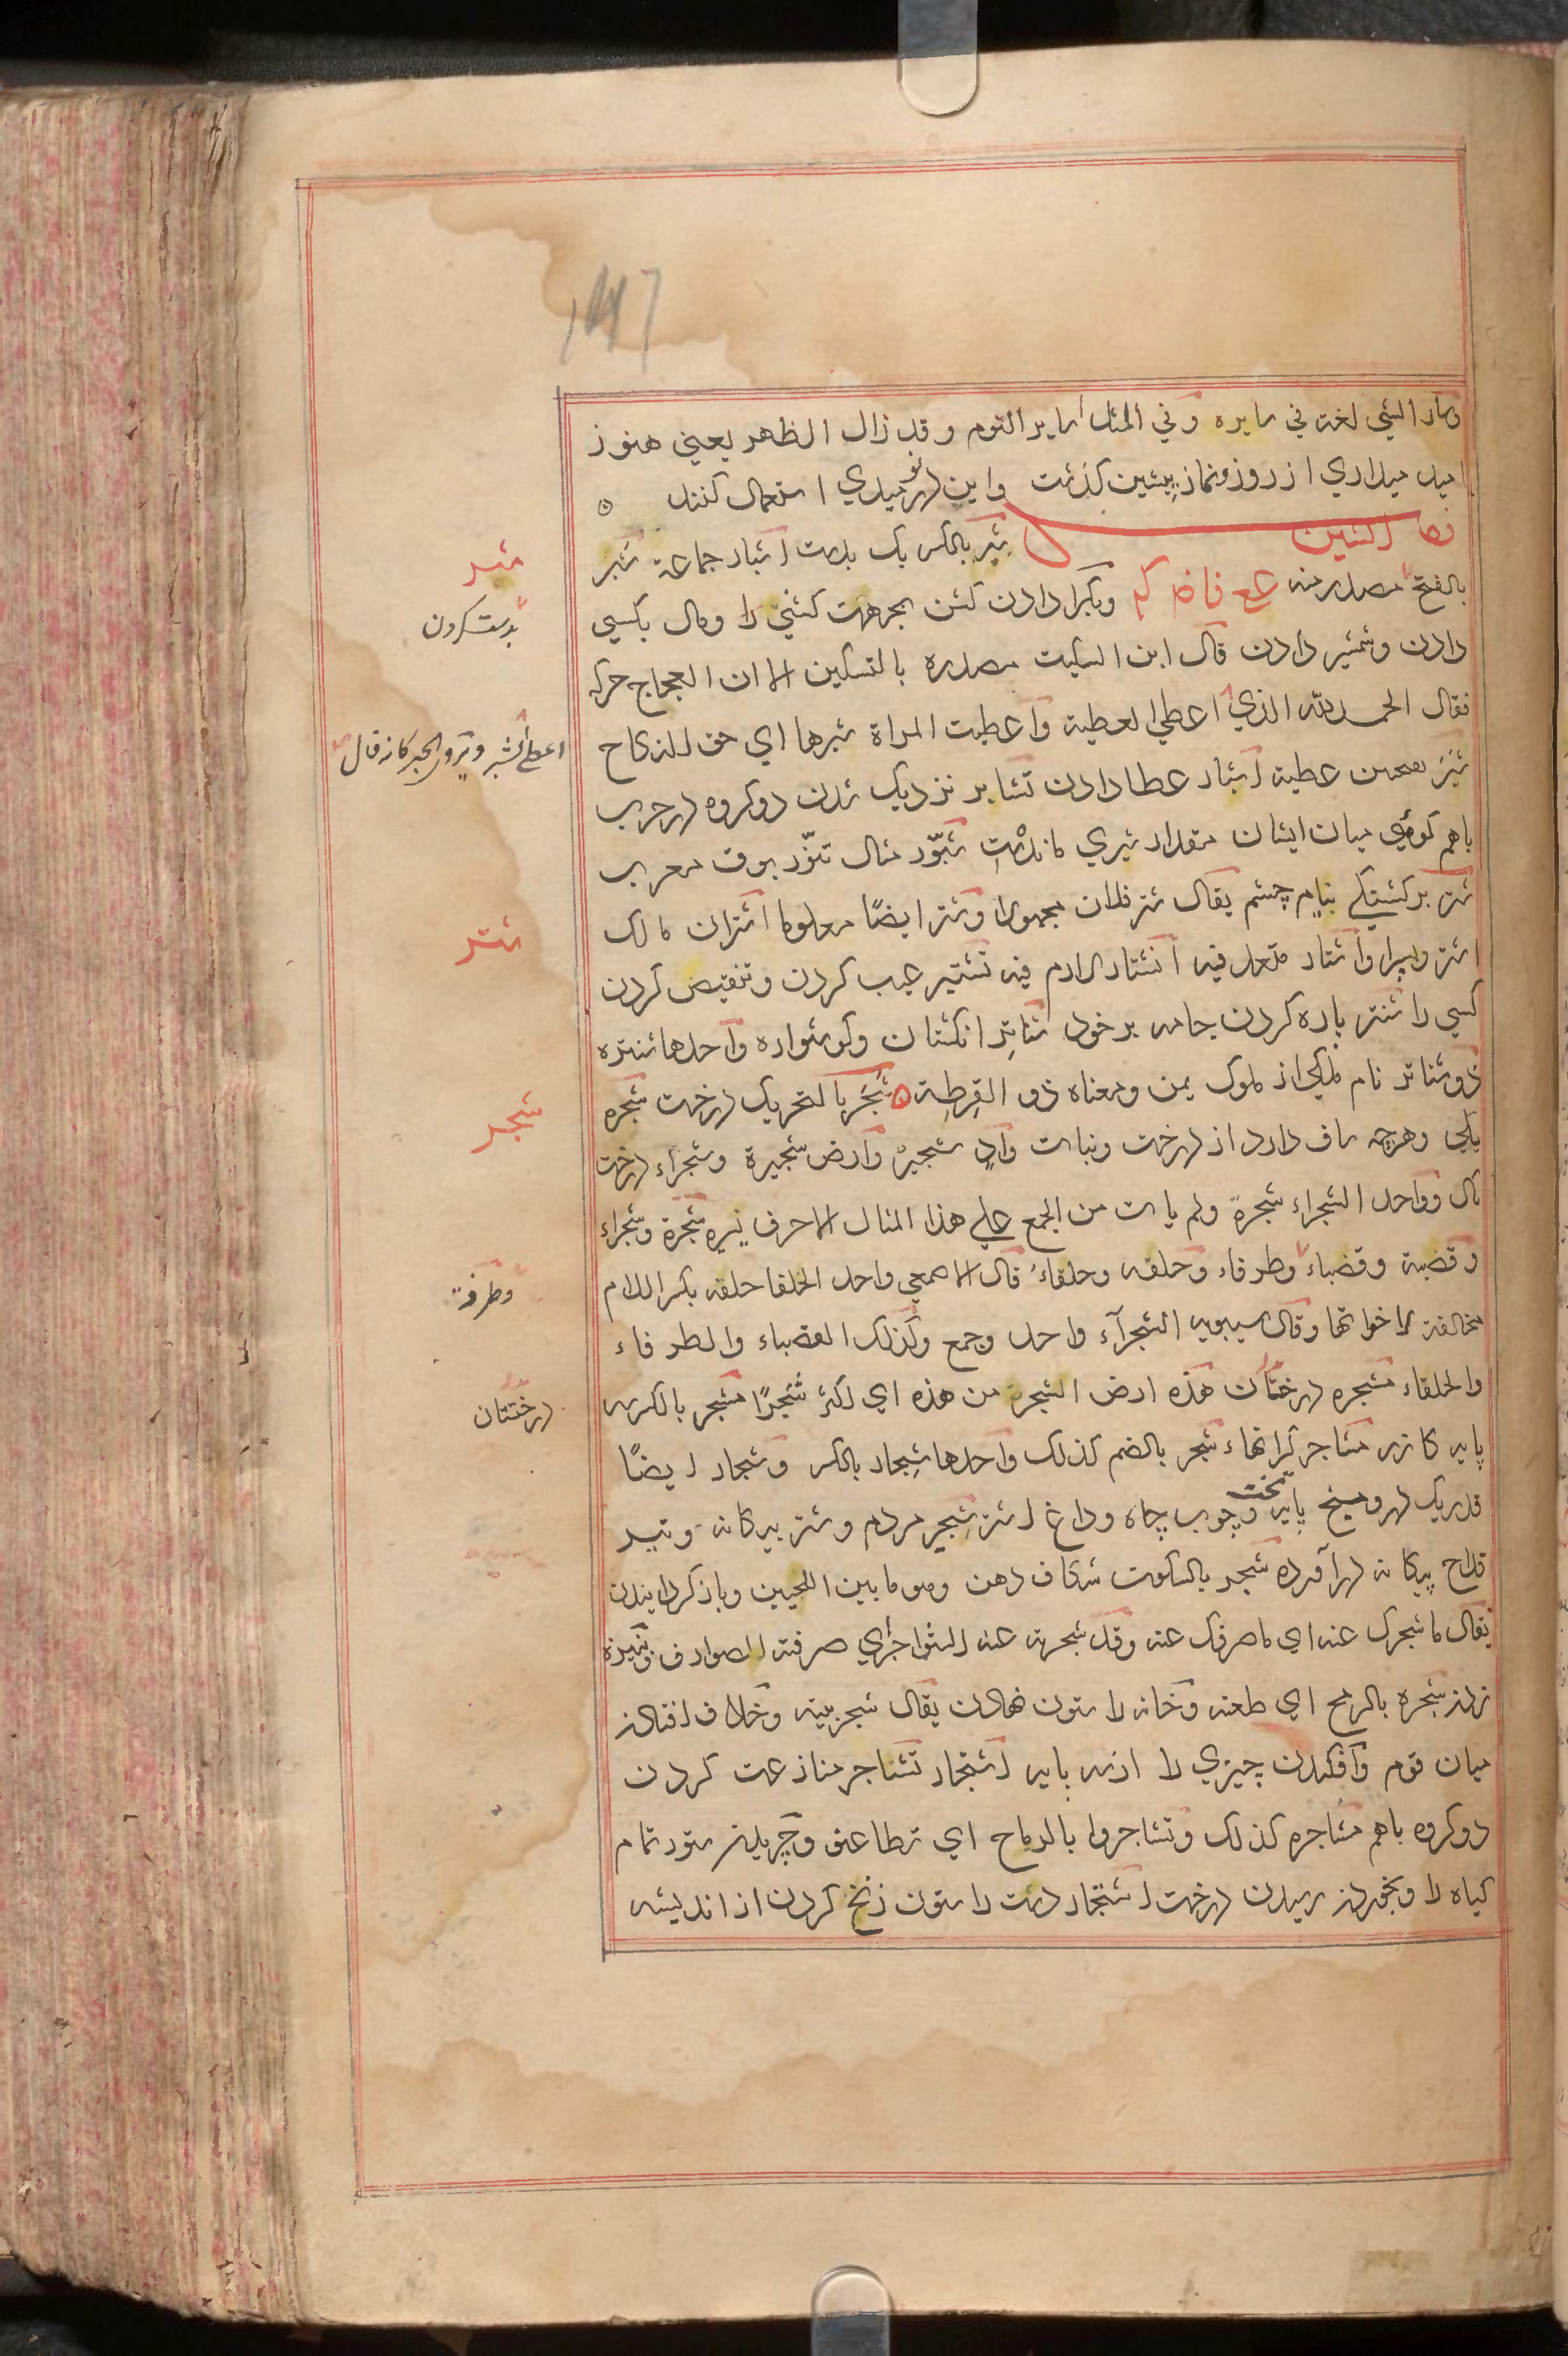 وسار الشي لغة في سايره وفي المثل اساير القوم وقد زال الظهر يعني هنوز
اميد ميداري از روز و نماز پيشين گذشت واين در نوميدي استعمال كنند ٥
فصل الشين شبر بالكسر يك بدست اشبار جماعة شبر
بالفتح مصدر منه ع ف وبكرا دادن گشن بجهت گشني را ومال بكسي
دادن وشمشير دادن قال ابن السكيت مصدره بالتسكين الا ان العجاج حركه
فقال الحمد لله الذي اعطي العطية واعطيت المراة شبرها اي حق النكاح
شبر عطية اشبار عطا دادن تشابر نزديك شدن دو گروه در حرب
باهم گوئي ميان ايشان مقدار شبري مانده است شبّور مثال تنّور بوق معرب
شتر برگشتگي نيام چشم يقال شتر فلان مجهولا وشتر ايضًا معلوما اشتران مالك
اشتر وپسرا واشتار متعد فيه انشتار لازم فيه تشتير عيب كردن وتنقيص كردن
كسي را شنتر پاره كردن جامه بر خود شناتر انگشتان وگوشواره واحدها شنتره
ذو شناتر نام ملكي از ملوك يمن ومعناه ذو القرطة ٥ شجر بالتحريك درخت شجره
يكي وهرچه ساق دارد از درخت ونبات وادٍ شجيرٌ وارض شجيرة وشجراء درخت
ناك وواحد الشجراء شجرة ولم يات من الجمع علي هذا المثال الا احرف يسيره شجرة وشجراء
وقصبة وقصباء وطرفاء وحلفه وحلفاءُ قال الاصمعي واحد الحلفا حلفه بكسر اللام
مخالفة لاخواتها وقال سيبويه الشجرآء واحد وجمع وكذلك القصباء والطرفاء
والحلفاء مشجره درختان هذه ارض اشجر من هذه اي اكثر شجرًا مشجر بالكسر سه
پايه گازر مشاجر شجر بالضم كذلك واحدها شِجار بالكسر وشجار ايضًا
در وميخ پايه تخت وچوب چاه وداغ اشتر شجير مردم وشتر بيگانه وتير
قداح بيگانه درآورده شجر بالسكون شكاف دهن وهو ما بين اللحيين وباز گردانيدن
يقال ما شجرك عنه اي ما صرفك عنه وقد شجرته عنه الشواجر اي صرفته الصوارف ونيزه
زدن شجره بالرمح اي طعنه وخانه را ستون نهادن يقال شجر بيته وخلاف افتادن
ميان قوم وافگندن چيزي را از سه پايه اشتجار تشاجر منازعت كردن
دو گروه باهم مشاجره كذلك وتشاجروا بالرماح اي تطاعنو وچريدن ستور تمام
گياه را وبخوردن رسيدن درخت اشتجار دست را ستون زنخ كردن از انديشه
شبر
بدست كردن
اعطي الشبر ويروي الحبر كانه قال
شتر
شجر
وطرفة
درختستان